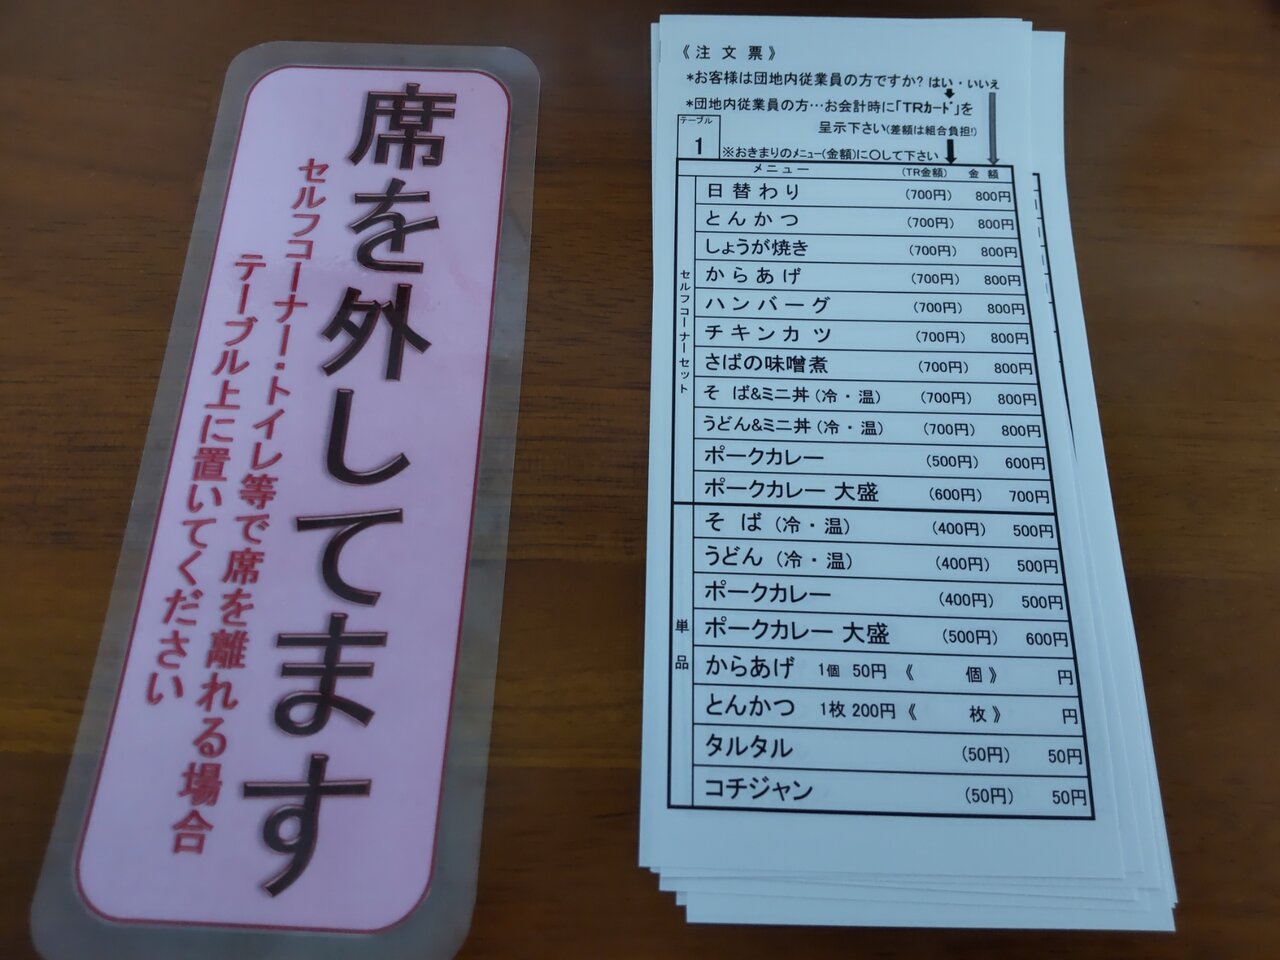 席を外してます
セルフコーナー・トイレ等で席を離れる場合
テーブル上に置いてください
《注文票》
*お客様は団地内従業員の方ですか? はい・いいえ
*団地内従業員の方…お会計時に「TRカード」を
呈示下さい(差額は組合負担!)
テーブル
1
※おきまりのメニュー(金額)に〇して下さい
メニュー (TR金額) 金額
セルフコーナーセット
日替わり (700円) 800円
とんかつ (700円) 800円
しょうが焼き (700円) 800円
からあげ (700円) 800円
ハンバーグ (700円) 800円
チキンカツ (700円) 800円
さばの味噌煮 (700円) 800円
そば&ミニ丼(冷・温) (700円) 800円
うどん&ミニ丼(冷・温) (700円) 800円
ポークカレー (500円) 600円
ポークカレー 大盛 (600円) 700円
単品
そば(冷・温) (400円) 500円
うどん(冷・温) (400円) 500円
ポークカレー (400円) 500円
ポークカレー 大盛 (500円) 600円
からあげ 1個 50円 《 個》 円
とんかつ 1枚 200円 《 枚》 円
タルタル (50円) 50円
コチジャン (50円) 50円